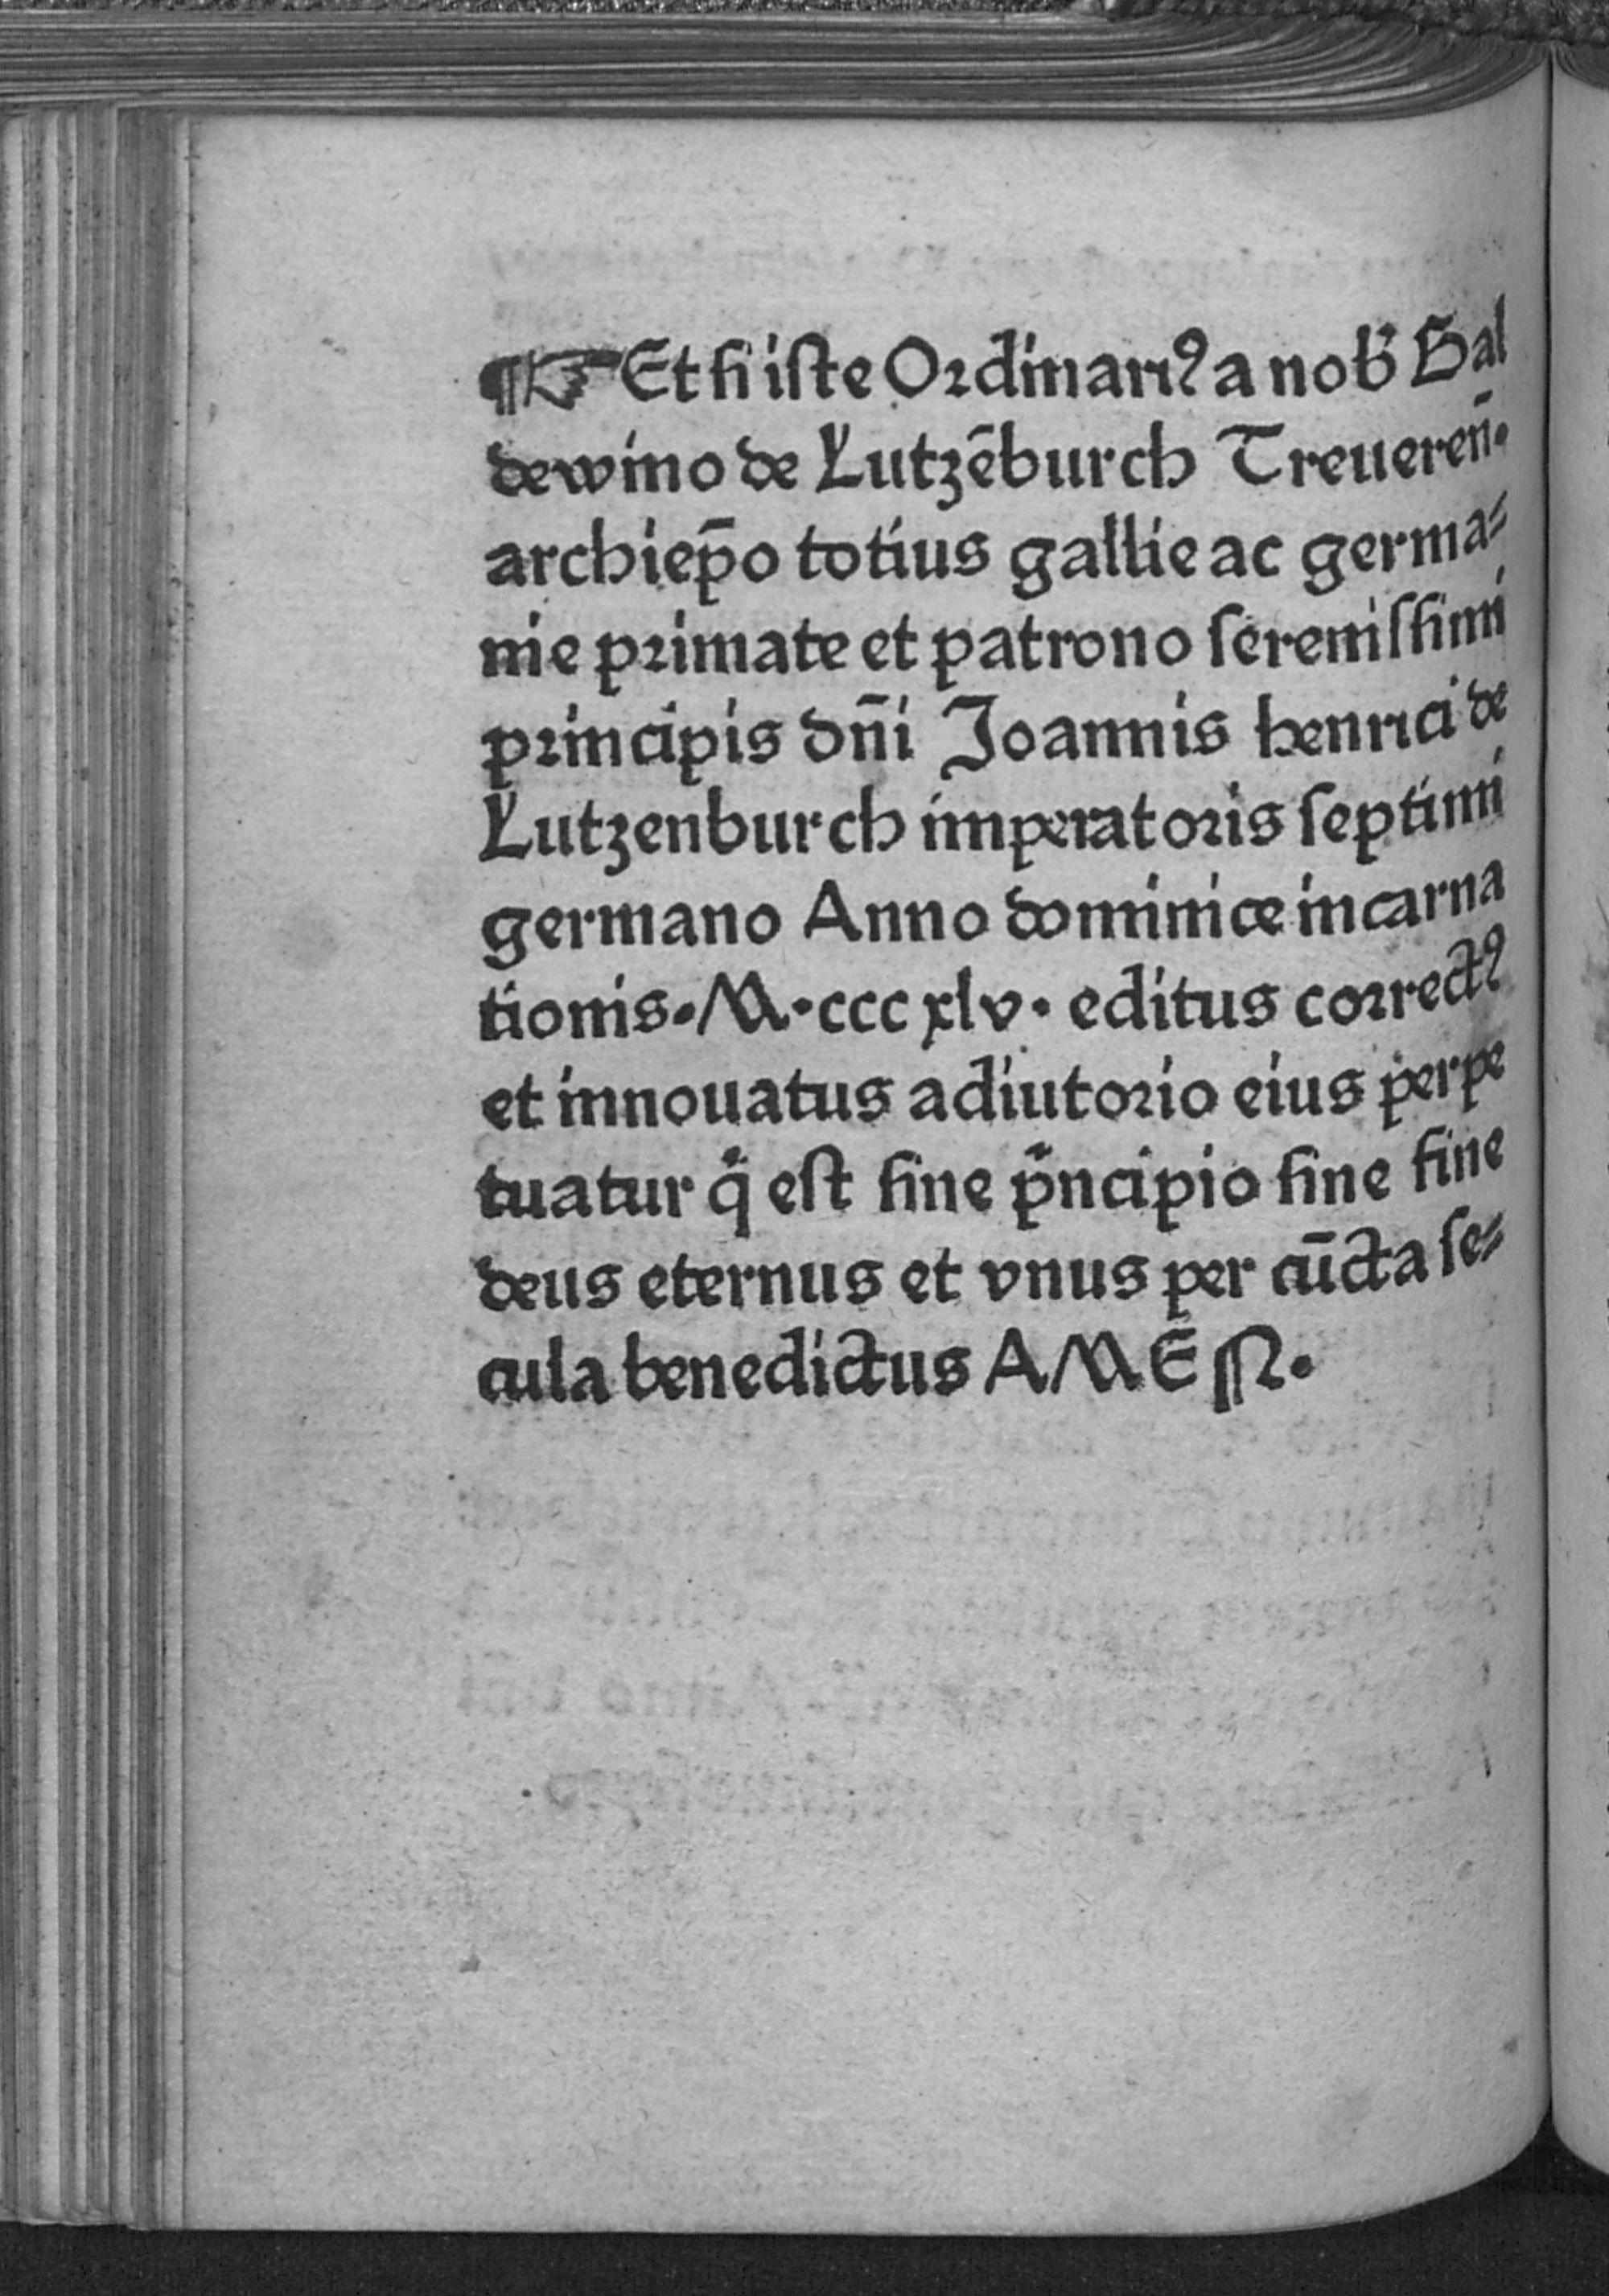 ¶☞ Et ſi iſte Oꝛdinariꝰ a nob̓ Bal
dewino de Lutzēburch Treueren̄.
archiep̄o totius gallie ac germa⸗
nie pꝛimate et patrono ſereniſſimi
pꝛincipis dn̄i Joannis henrici de
Lutzenburch imperatoꝛis ſeptimi
germano Anno dominice incarna
tionis. M. ccc xlv. editus coꝛrectꝰ
et innouatus adiutoꝛio eius perpe
tuatur q̄ eſt ſine p̄ncipio ſine fine
deus eternus et vnus per cūcta ſe⸗
cula benedictus AMEN.